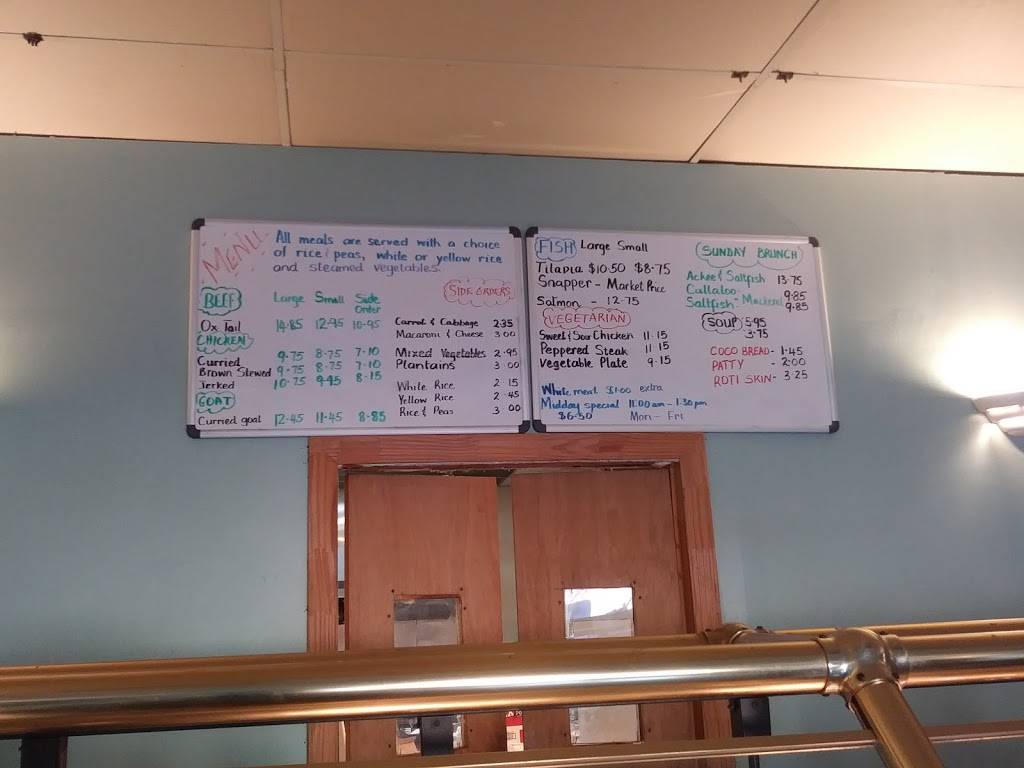 MENU!
All meals are served with a choice
of rice/peas, white or yellow rice
and steamed vegetables.
BEEF
Large Small Side Order
Ox Tail 14.85 12.95 10.95
CHICKEN
Curried 9.75 8.75 7.10
Brown Stewed 9.75 8.75 7.10
Jerked 10.75 9.95 8.15
GOAT
Curried goat 12.45 11.45 8.85
SIDE ORDERS
Carrot & Cabbage 2.35
Macaroni & Cheese 3.00
Mixed Vegetables 2.95
Plantains 3.00
White Rice 2.15
Yellow Rice 2.45
Rice & Peas 3.00
FISH Large Small
Tilapia $10.50 $8.75
Snapper - Market Price
Salmon - 12.75
VEGETARIAN
Sweet & Sour Chicken 11.15
Peppered Steak 11.15
Vegetable Plate 9.15
White meat $1.00 extra
Midday special 11:00 am - 1:30 pm
$6.50 Mon - Fri
SUNDAY BRUNCH
Ackee & Saltfish 13.75
Callaloo
Saltfish - 9.85
Mackerel 9.85
SOUP 5.95
3.75
COCO BREAD - 1.45
PATTY - 2.00
ROTI SKIN - 3.25